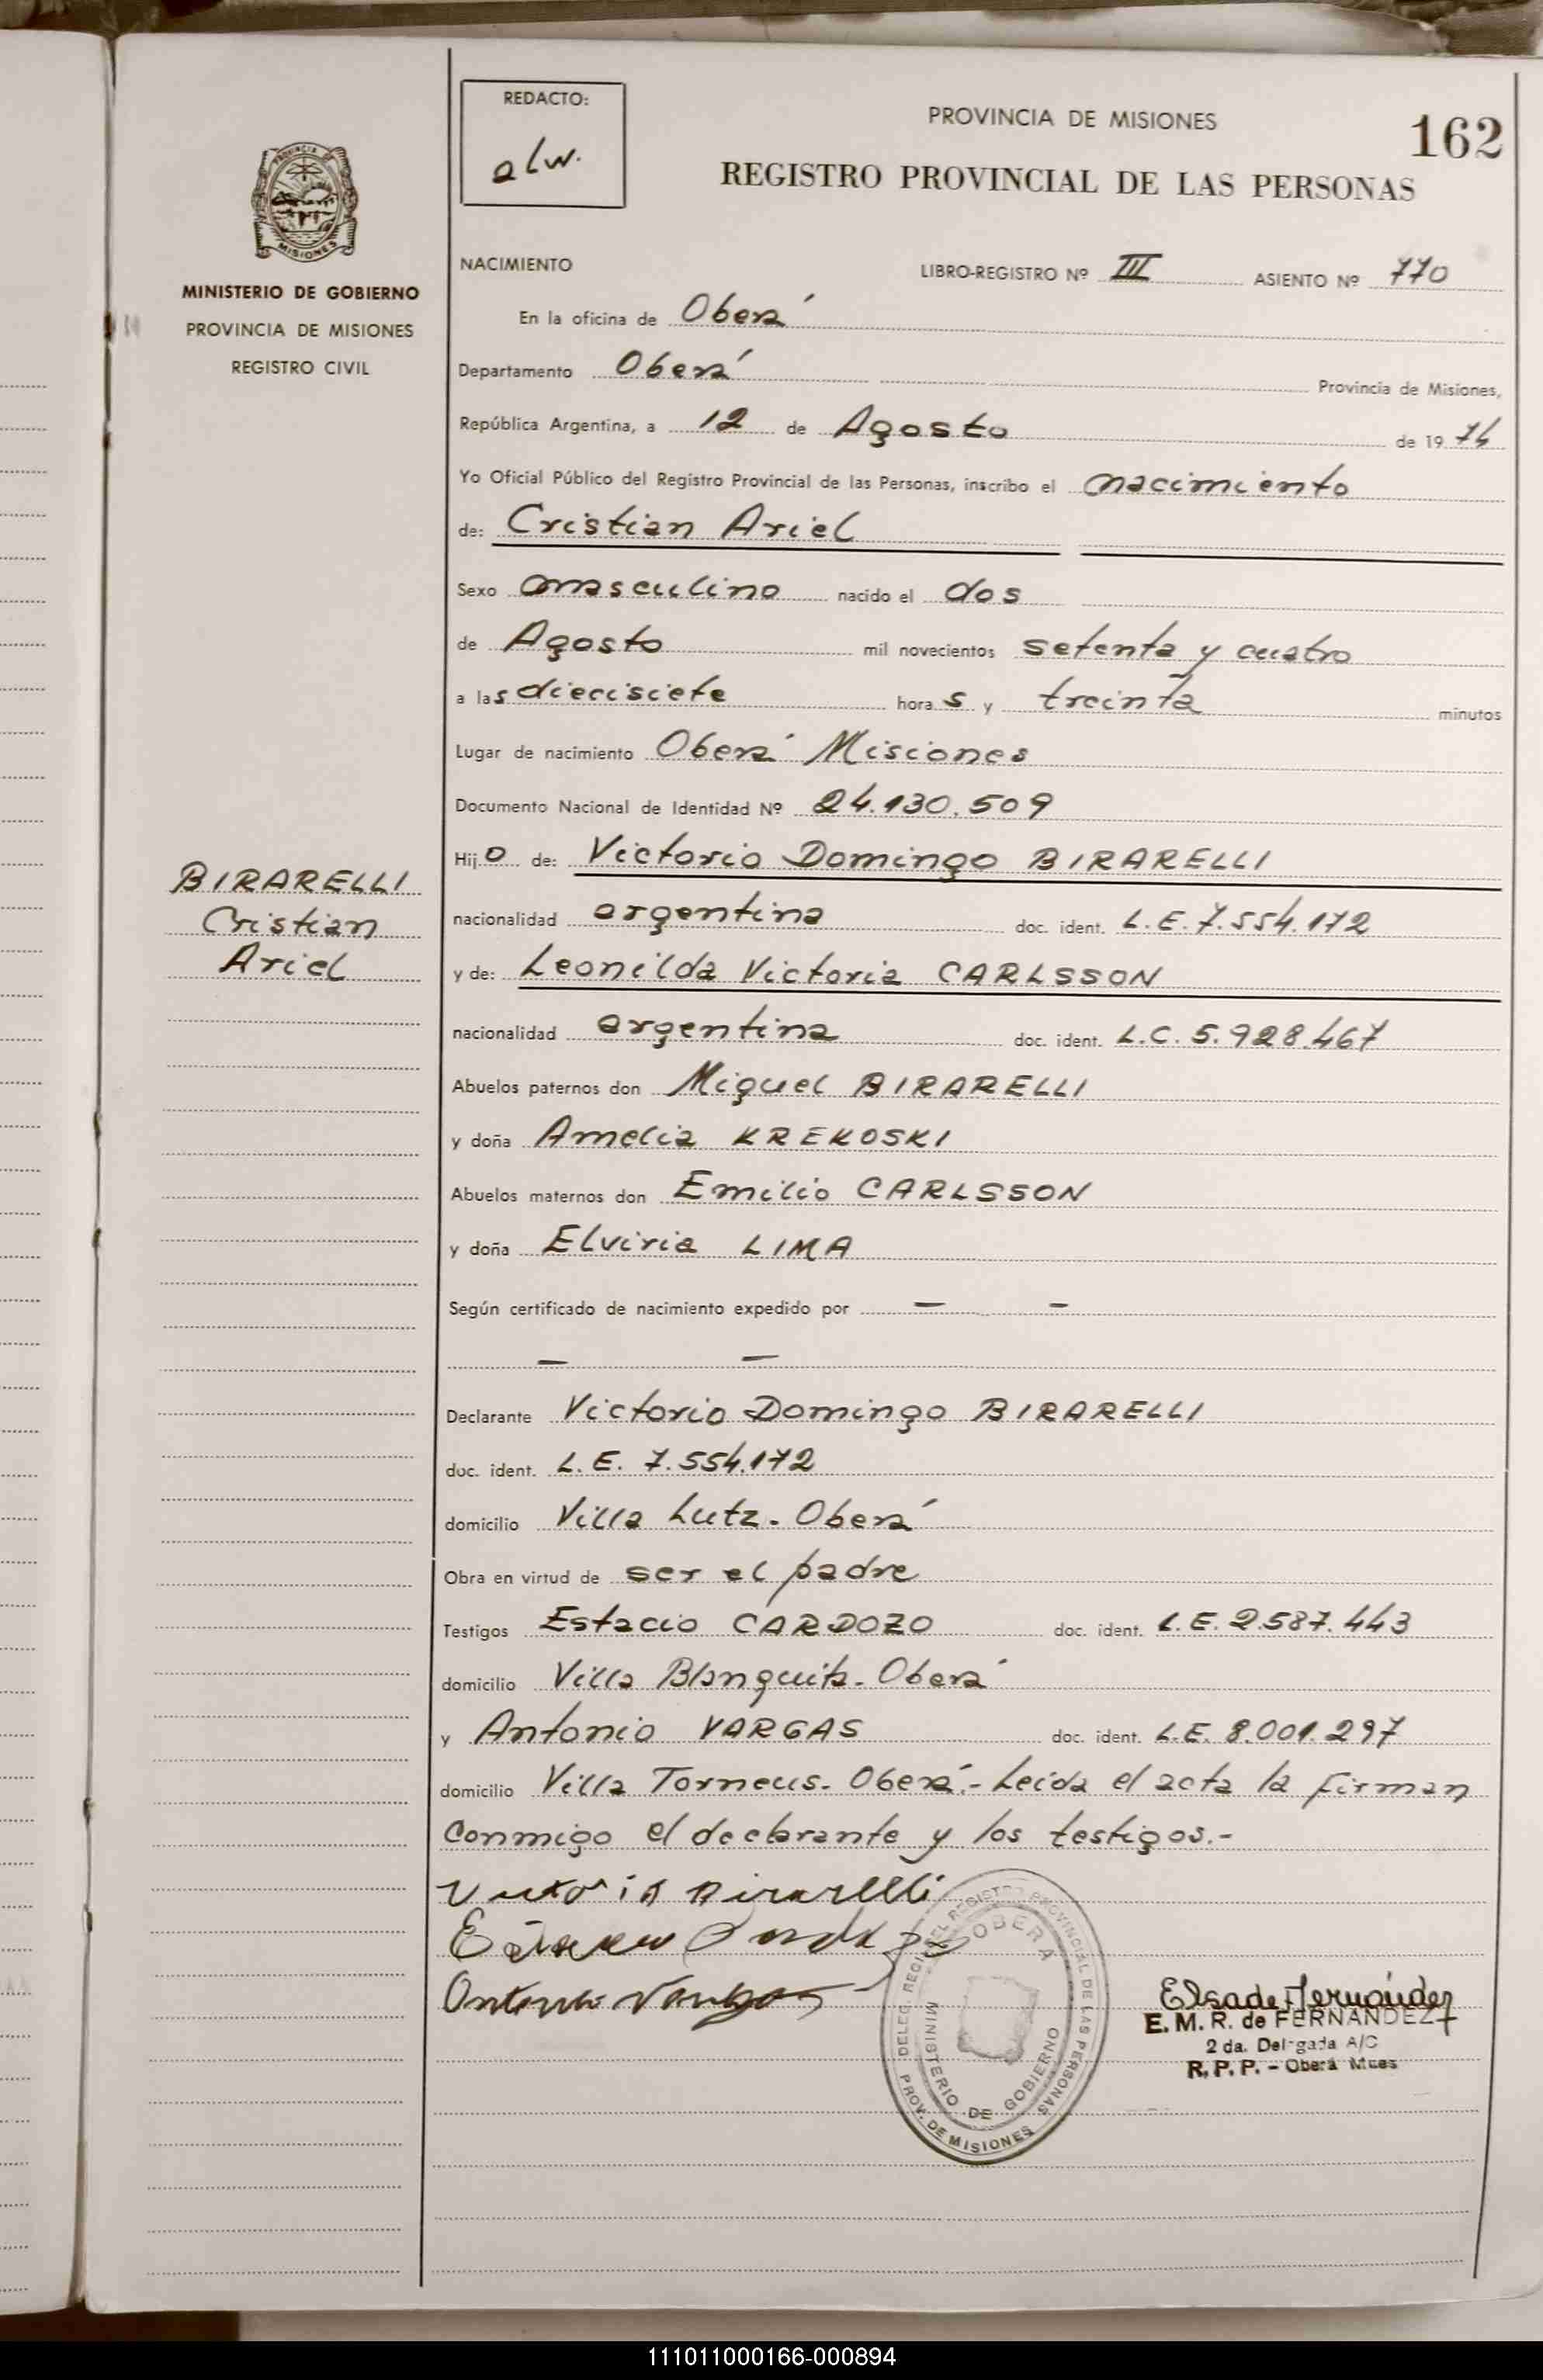 REDACTO:
alw.
PROVINCIA DE MISIONES
162
REGISTRO PROVINCIAL DE LAS PERSONAS
PROVINCIA DE
MISIONES
MINISTERIO DE GOBIERNO
PROVINCIA DE MISIONES
REGISTRO CIVIL
NACIMIENTO LIBRO-REGISTRO Nº III ASIENTO Nº 770
En la oficina de Oberá
Departamento Oberá Provincia de Misiones,
República Argentina, a 12 de Agosto de 1974
Yo Oficial Público del Registro Provincial de las Personas, inscribo el nacimiento
de: Cristian Ariel
Sexo masculino nacido el dos
de Agosto mil novecientos setenta y cuatro
a las diecisiete horas y treinta minutos
Lugar de nacimiento Oberá Misiones
Documento Nacional de Identidad Nº 24.130.509
Hijo de: Victorio Domingo BIRARELLI
BIRARELLI
Cristian
Ariel
nacionalidad argentina doc. ident. L.E. 7.554.172
y de: Leonilda Victoria CARLSSON
nacionalidad argentina doc. ident. L.C. 5.928.467
Abuelos paternos don Miguel BIRARELLI
y doña Amelia KREKOSKI
Abuelos maternos don Emilio CARLSSON
y doña Elviria LIMA
Según certificado de nacimiento expedido por — —
— —
Declarante Victorio Domingo BIRARELLI
doc. ident. L.E. 7.554.172
domicilio Villa Lutz - Oberá
Obra en virtud de ser el padre
Testigos Estacio CARDOZO doc. ident. L.E. 2.587.443
domicilio Villa Blanquita - Oberá
y Antonio VARGAS doc. ident. L.E. 8.001.297
domicilio Villa Torneus - Oberá.- Leida el acta la firman
conmigo el declarante y los testigos.-
Victorio Birarelli
Antonio Vargas
DELEG. REG. DEL REGISTRO PROVINCIAL DE LAS PERSONAS
OBERA
MINISTERIO DE GOBIERNO
PROV. DE MISIONES
Elsa de Fernández
E. M. R. de FERNANDEZ
2 da. Delegada A/C
R. P. P. - Oberá Mnes
111011000166-000894